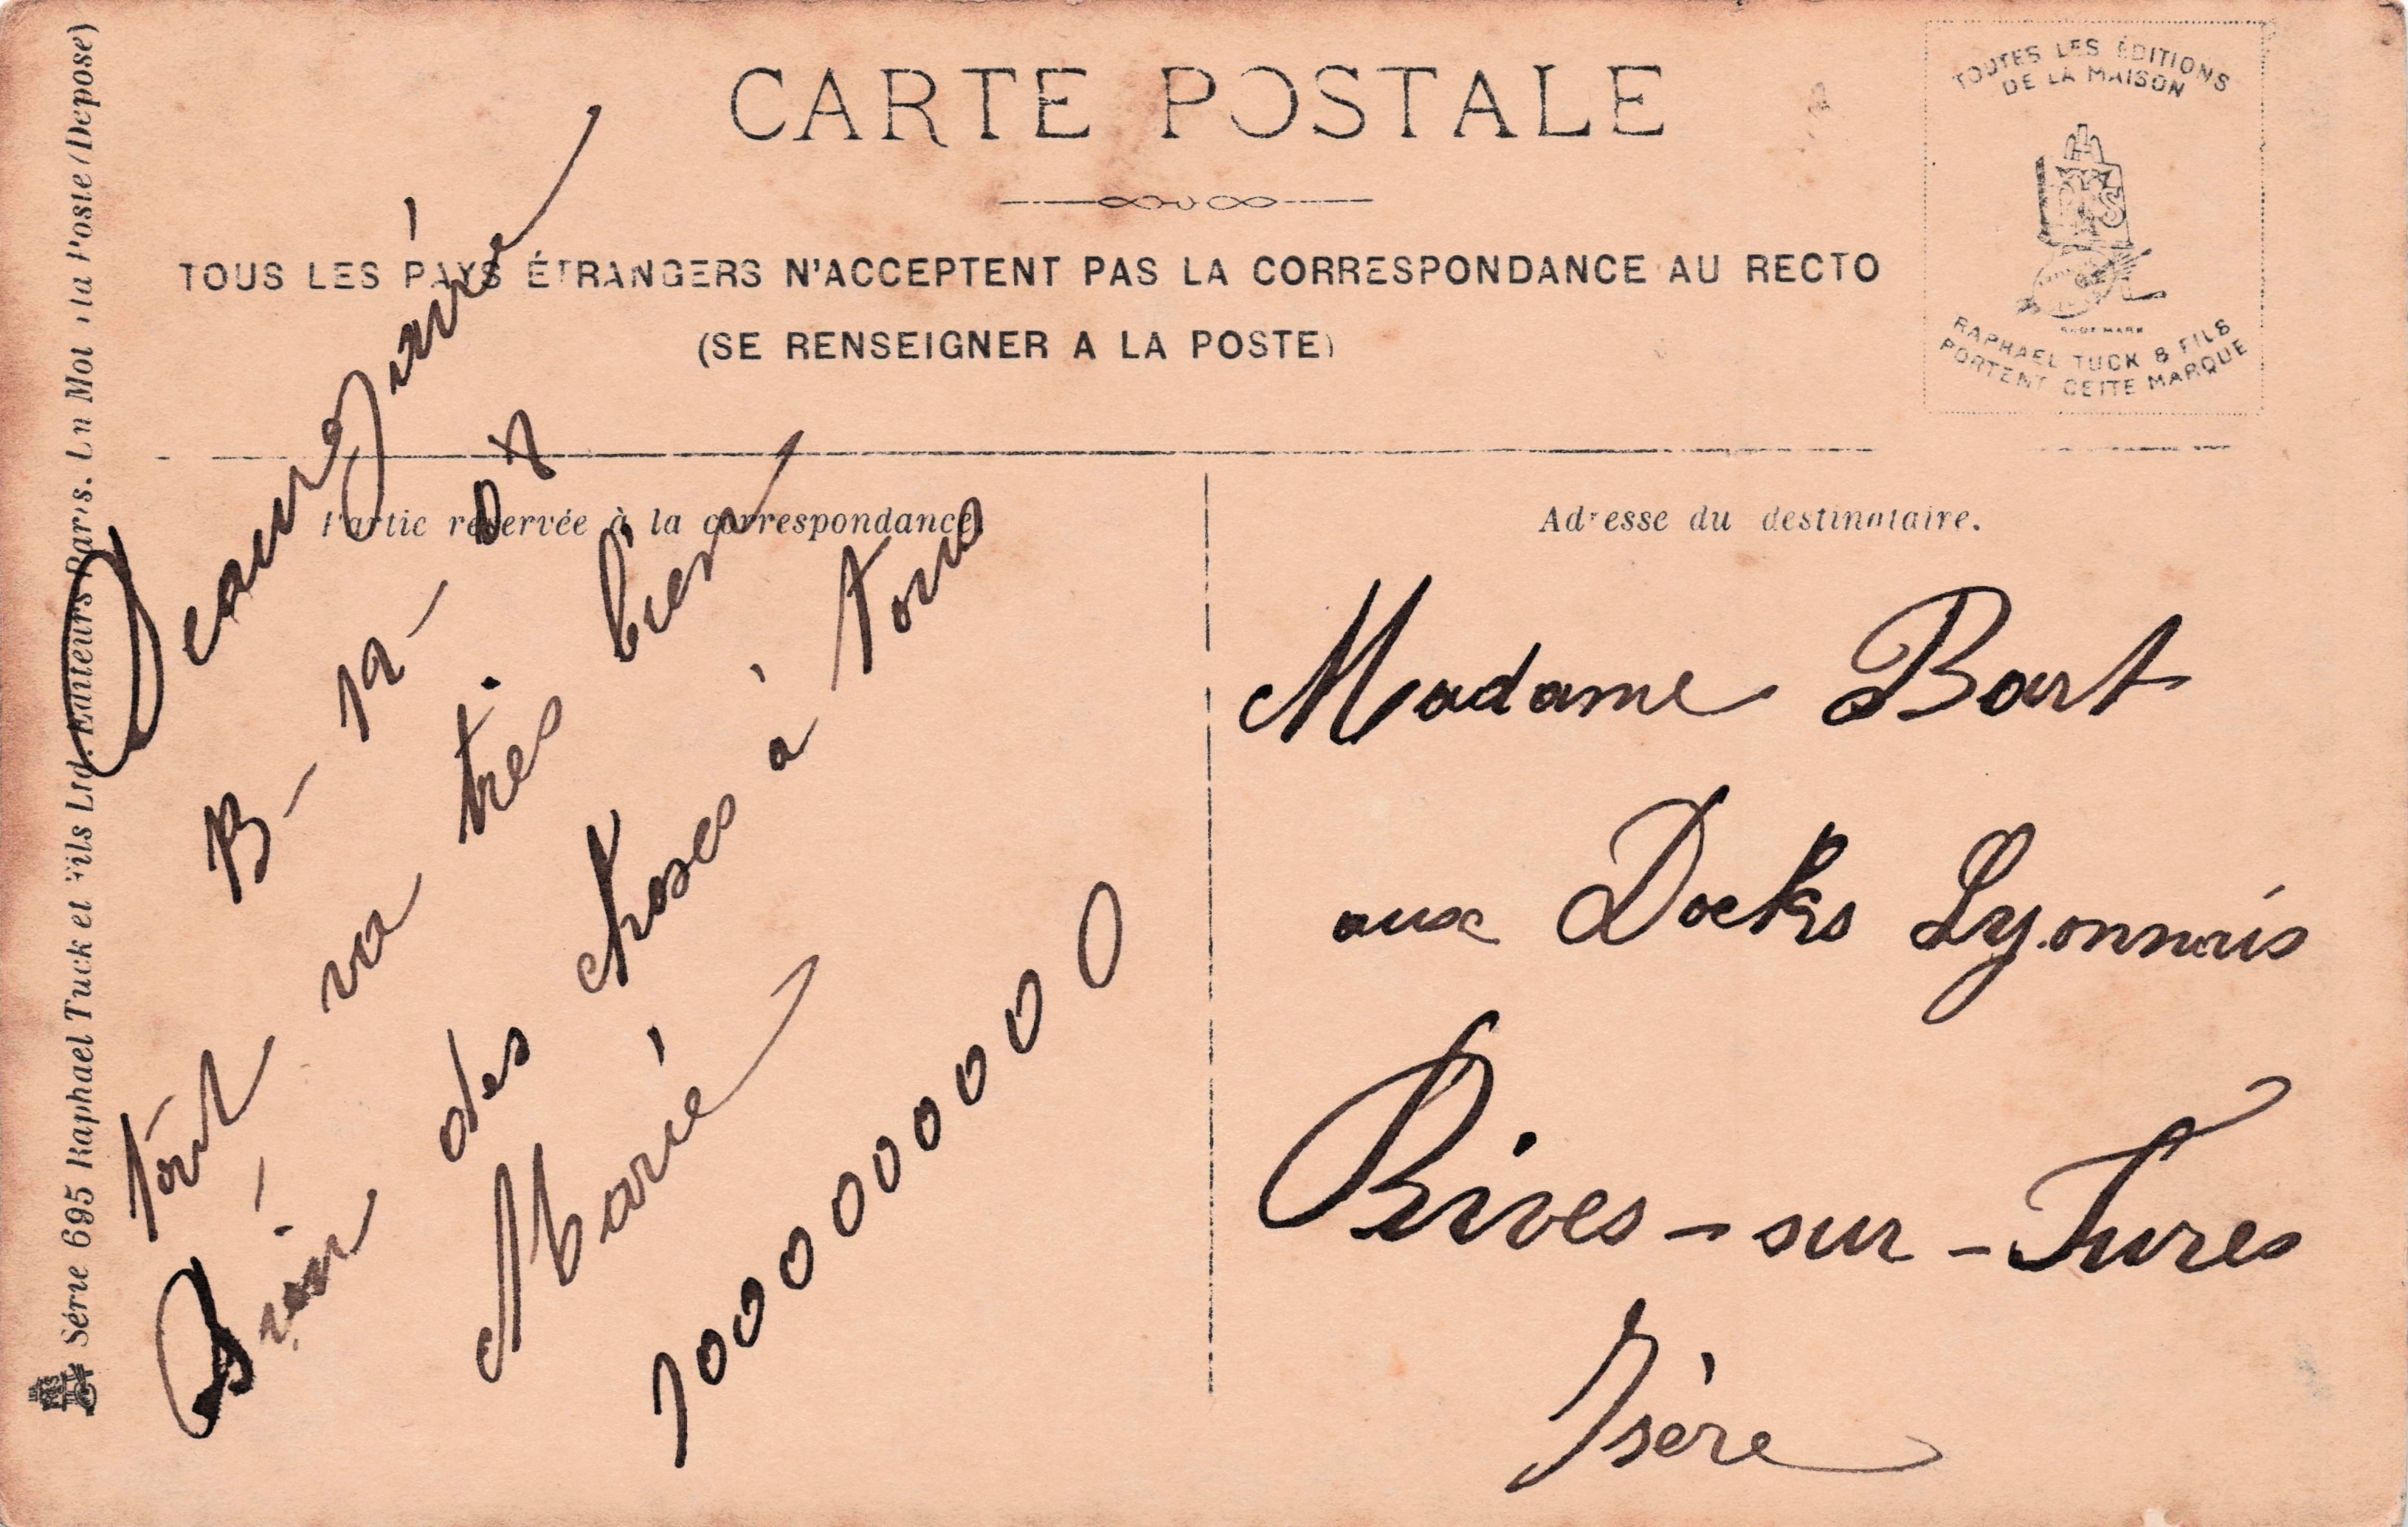 CARTE POSTALE
TOUTES LES ÉDITIONS
DE LA MAISON
TRADE MARK
RAPHAEL TUCK & FILS
PORTENT CETTE MARQUE
TOUS LES PAYS ÉTRANGERS N'ACCEPTENT PAS LA CORRESPONDANCE AU RECTO
(SE RENSEIGNER A LA POSTE)
Série 695 Raphael Tuck et Fils Ltd. Editeurs Paris. Un Mot à la Poste (Déposé)
Partie réservée à la correspondance.
13 - 12 - 08
Tout va très bien
Bien des choses à tous
Marie
1000000000
Adresse du destinataire.
Madame Bart
aux Docks Lyonnais
Rives - sur - Fures
Isère